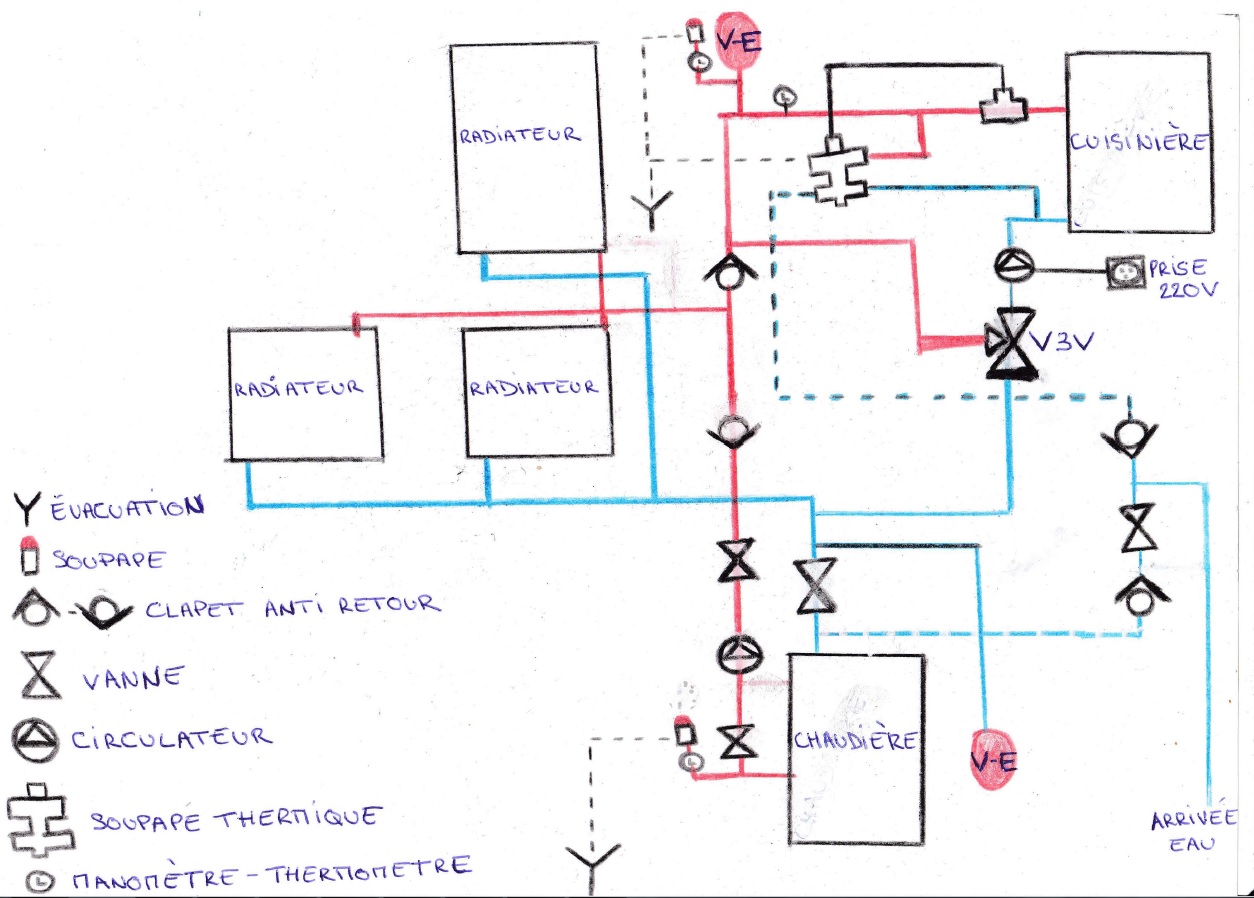 V-E
RADIATEUR
CUISINIÈRE
PRISE
220V
V3V
RADIATEUR
RADIATEUR
ÉVACUATION
SOUPAPE
CLAPET ANTI RETOUR
VANNE
CIRCULATEUR
SOUPAPE THERMIQUE
MANOMÈTRE-THERMOMETRE
CHAUDIÈRE
V-E
ARRIVÉE
EAU